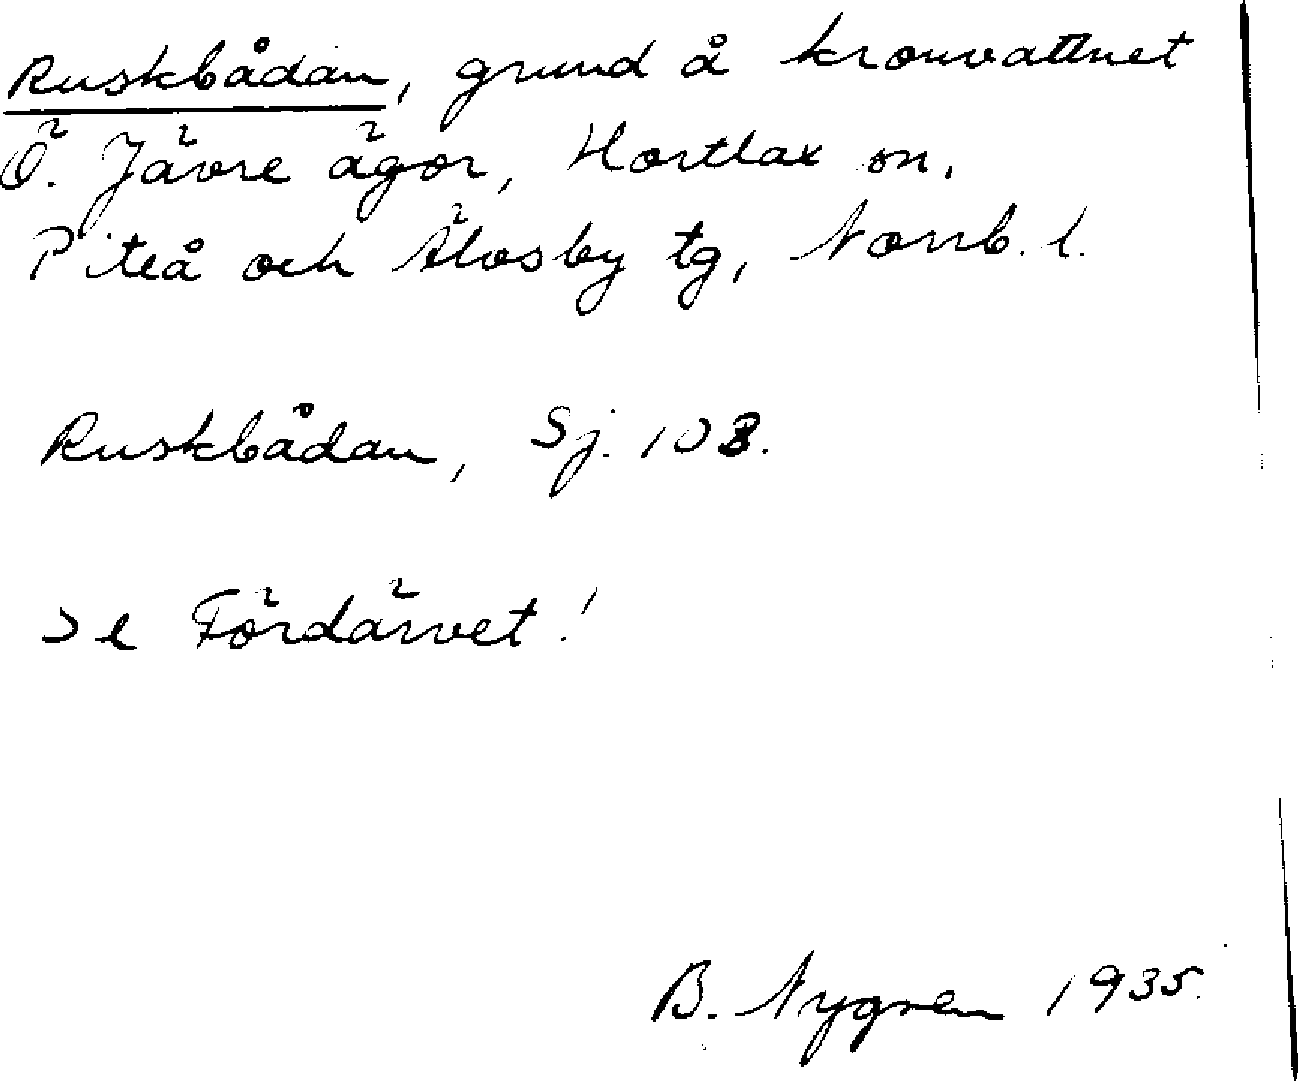 Ruskbådan, grund å kronvattnet
Ö. Jävre ägor, Hortlax sn,
Piteå och Älvsby tg, Norrb. l.
Ruskbådan, Sj. 103.
Se Fördärvet!
B. Nygren 1935.